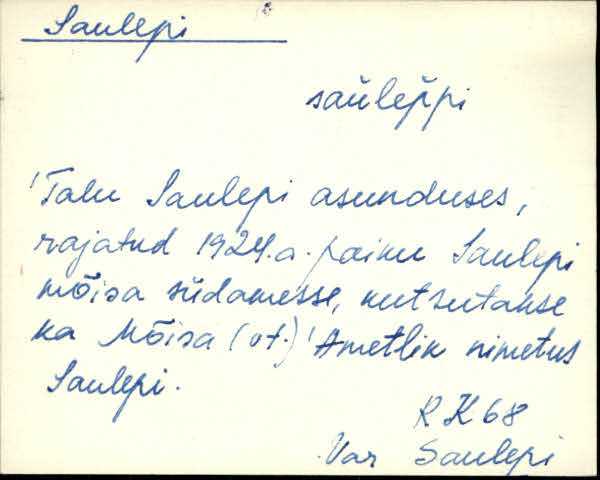 Saulepi
saùlèp̀pi
'Talu Saulepi asunduses,
rajatud 1924.a. paiku Saulepi
mõisa südamesse, kutsutakse
ka Mõisa (vt.)' Ametlik nimetus
Saulepi.
R K 68
Var Saulepi